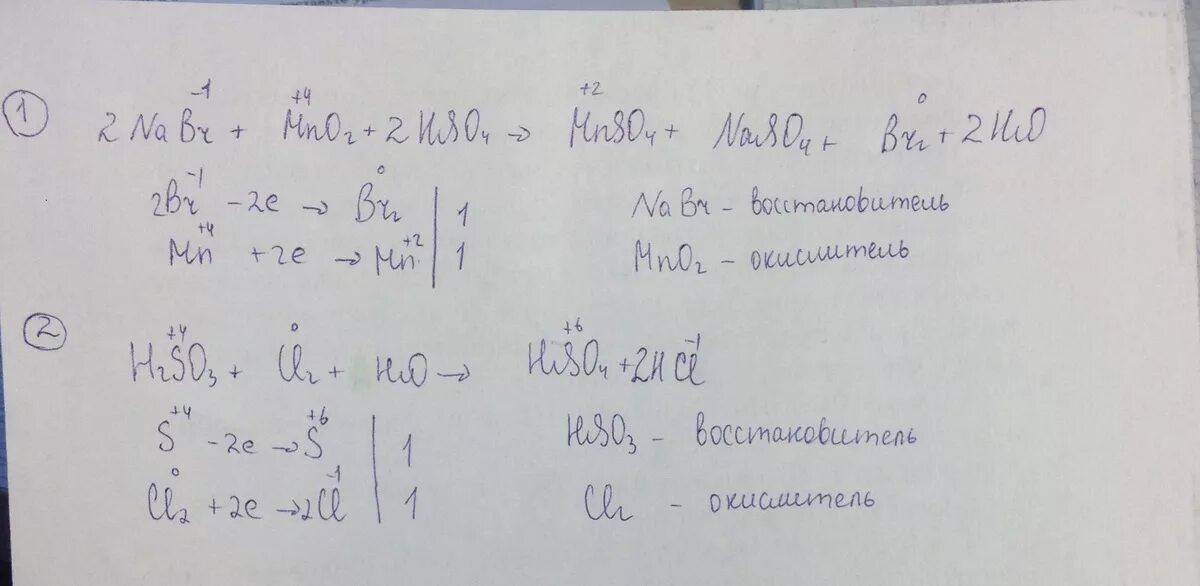 1
-1 +4 +2 0
2NaBr + MnO2 + 2H2SO4 → MnSO4 + Na2SO4 + Br2 + 2H2O
-1 0
2Br - 2e → Br2 | 1 NaBr - восстановитель
+4 +2
Mn + 2e → Mn | 1 MnO2 - окислитель
2
+4 0 +6 -1
H2SO3 + Cl2 + H2O → H2SO4 + 2HCl
+4 +6
S - 2e → S | 1 H2SO3 - восстановитель
0 -1
Cl2 + 2e → 2Cl | 1 Cl2 - окислитель